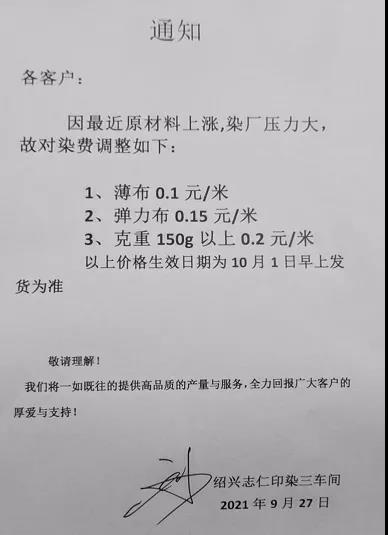 通知
各客户：
因最近原材料上涨,染厂压力大，
故对染费调整如下：
1、薄布 0.1 元/米
2、弹力布 0.15 元/米
3、克重 150g 以上 0.2 元/米
以上价格生效日期为 10 月 1 日早上发
货为准
敬请理解！
我们将一如既往的提供高品质的产量与服务，全力回报广大客户的
厚爱与支持！
绍兴志仁印染三车间
2021 年 9 月 27 日